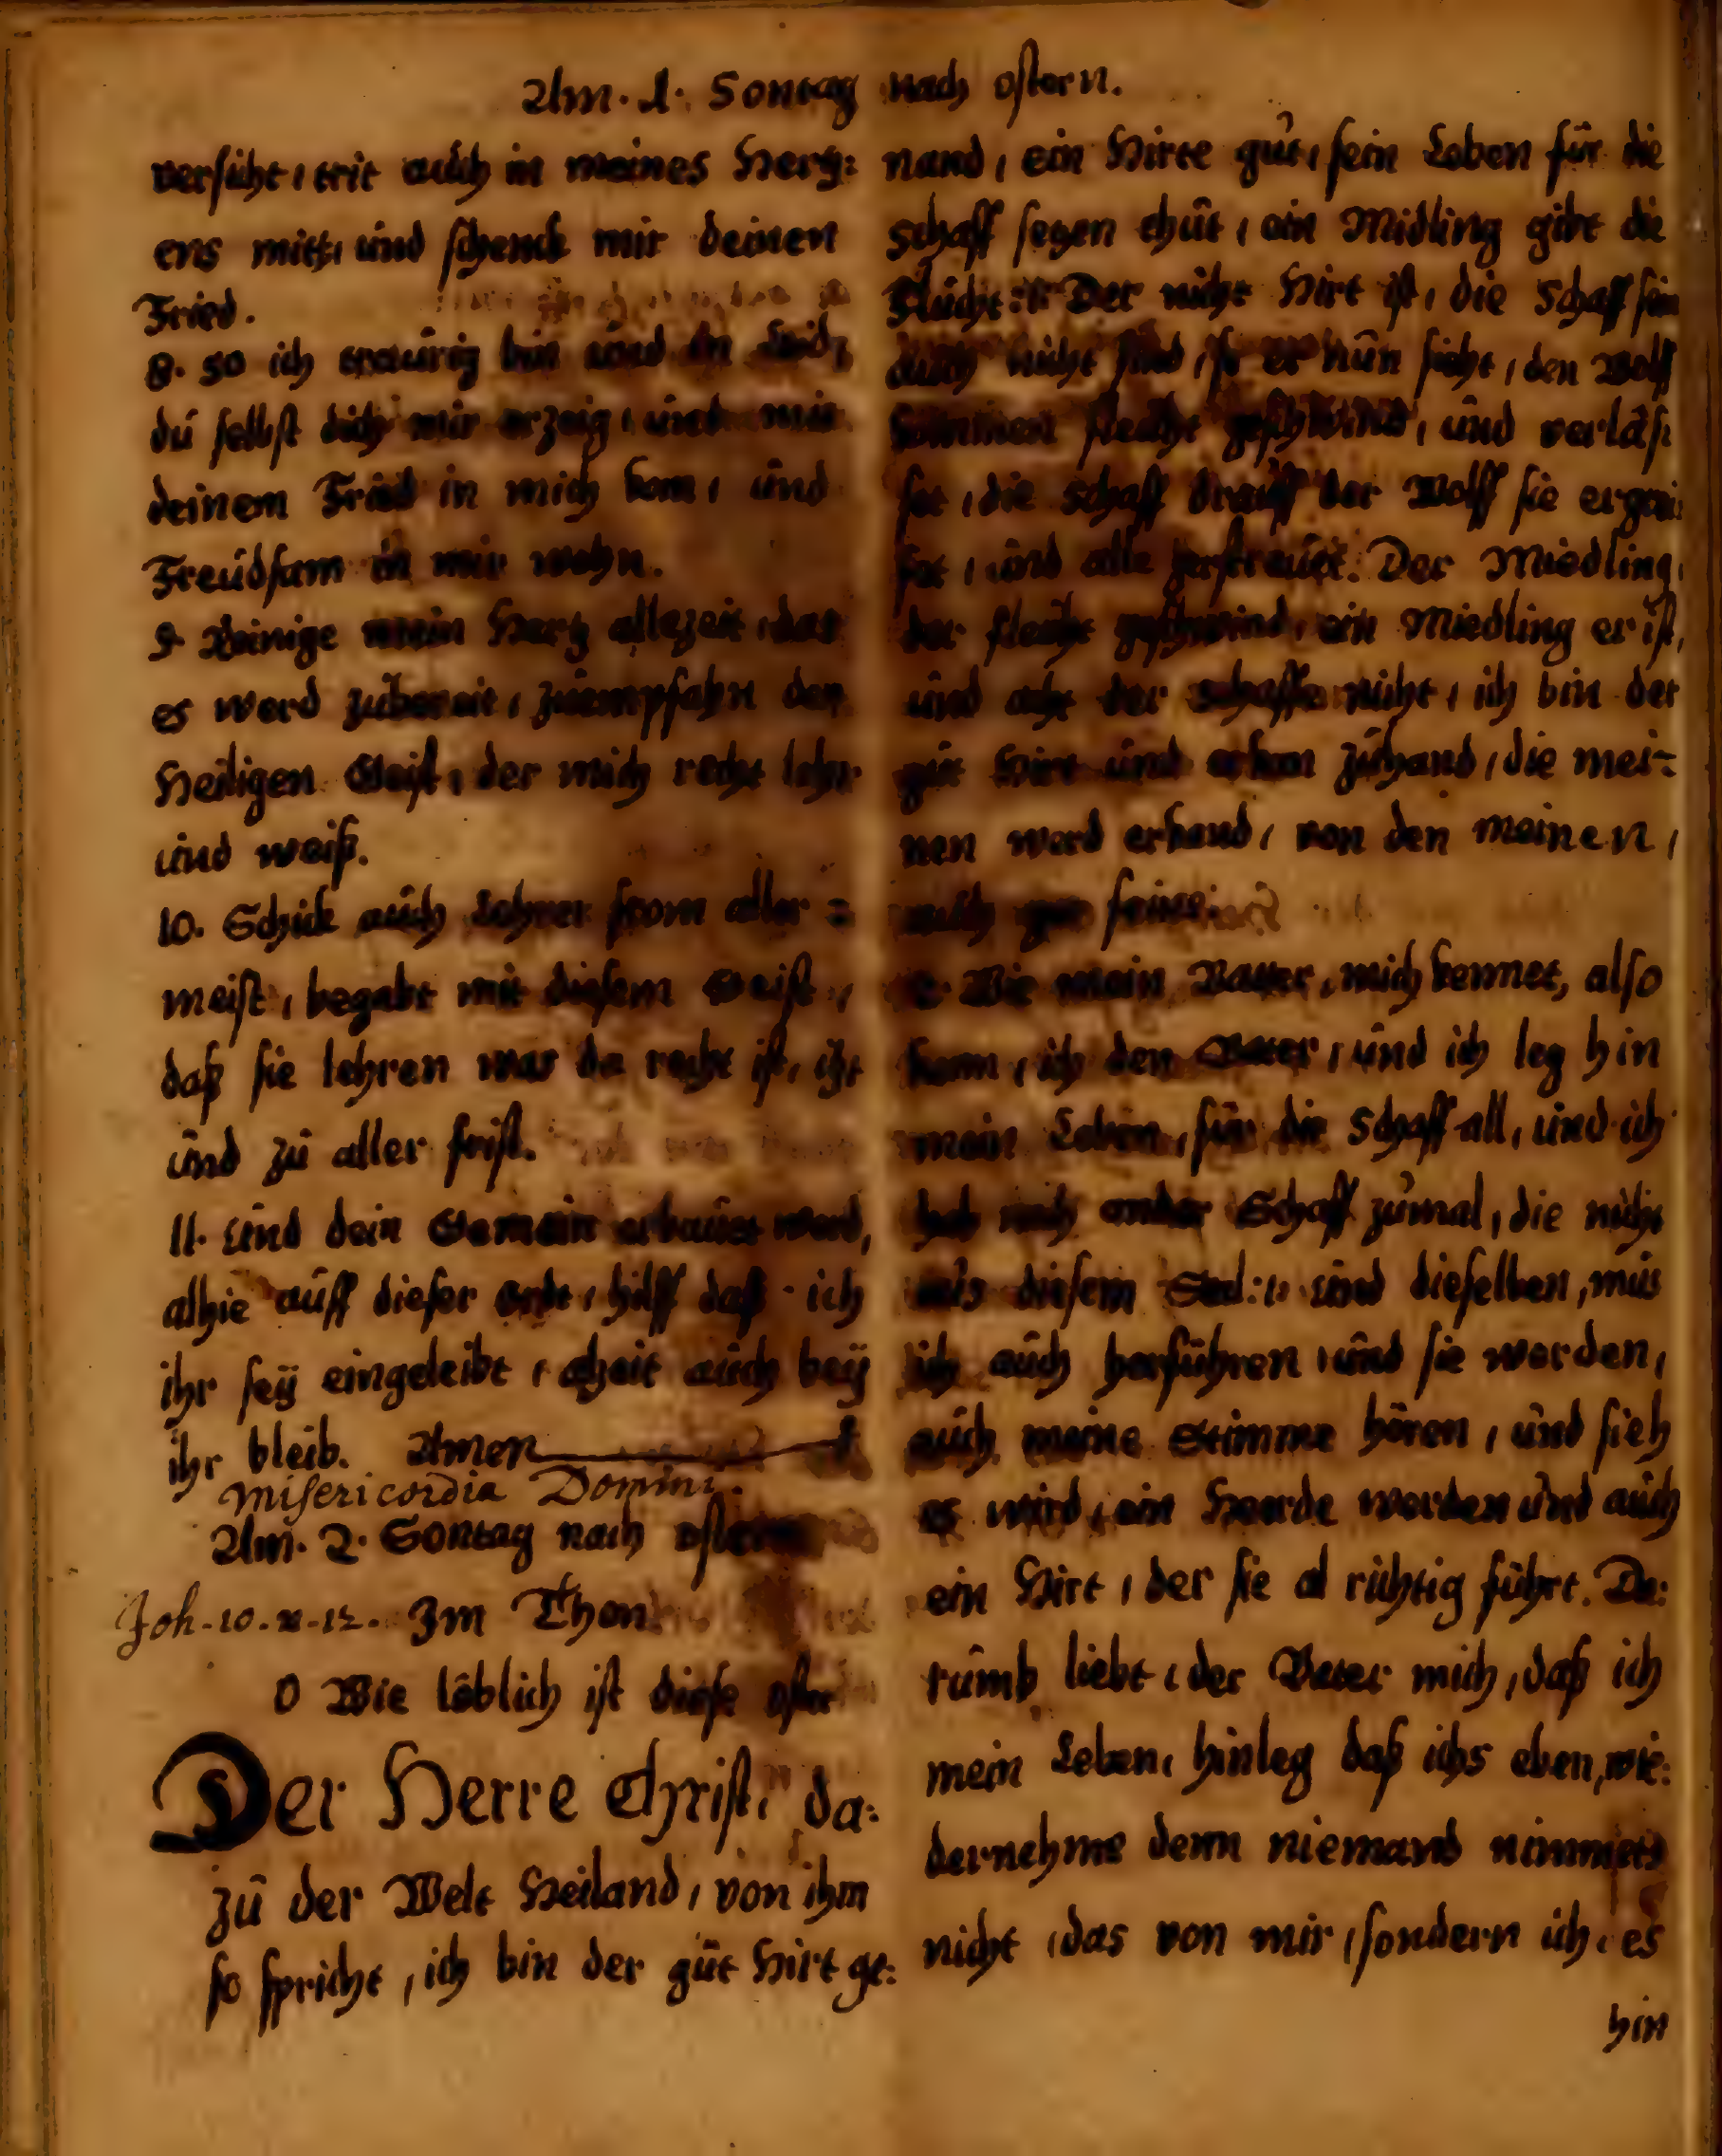 Am. 1. Sontag nach ostern.
versüht, trit auch in meines Hertz:
ens mitt, und schenck mir deinen
Fried.
8. So ich traurig bin und in leid,
du selbst dich mir erzeig, und mit
deinem Fried in mich kom, und
Freudsam in mir wohn.
9. Reinige mein Hertz allezeit, das
es werd zubereit, zuempfahn den
Heiligen Geist, der mich recht lehr
und weiß.
10. Schick auch Lehrer from aller =
meist, begabt mit diesem Geist,
daß sie lehren was da recht ist, izt
und zu aller frist.
11. Und dein Gemein erbauet werd,
alhie auff dieser erde, hilff daß ich
ihr seÿ eingeleibt, allzeit auch beÿ
ihr bleib. Amen
Misericordia Domini.
Am. 2. Sontag nach ostern
Joh. 10. v. 12. Im Thon
O Wie löblich ist diese oster
Der Herre Christ, da:
zu der Welt Heiland, von ihm
so spricht, ich bin der gut Hirt ge:
nand, ein Hirte gut, sein Leben für die
Schaff setzen thut, ein Midling gibt die
Flucht :||: Der nicht Hirt ist, die Schaff sein
auch nicht sind, so er nun sicht, den Wolff
kommen fleucht geschwind, und verläs:
set, die Schaff drauff der Wolff sie ergrei:
fet, und alle zerstreuet. Der Miedling,
der fleucht geschwind, ein Miedling er ist,
und acht der Schaffe nicht, ich bin der
gut Hirt und erken zuhand, die mei=
nen werd erkand, von den meinen,
auch gar feine.
2. Wie mein Vatter, mich kennet, also
kenn, ich den Vater, und ich leg hin
mein Leben, für die Schaff all, und ich
hab noch ander Schaff zumal, die nicht
aus diesem Stal :||: und dieselben, mus
ich auch herführen, und sie werden,
auch meine Stimme hören, und sieh
es wird, ein Heerde werden und auch
ein Hirt, der sie al richtig führt. Da:
rumb liebt, der Vater mich, daß ich
mein Leben, hinleg daß ichs eben, wie:
dernehme denn niemand nimmets
nicht, das von mir, sondern ich, es
hin